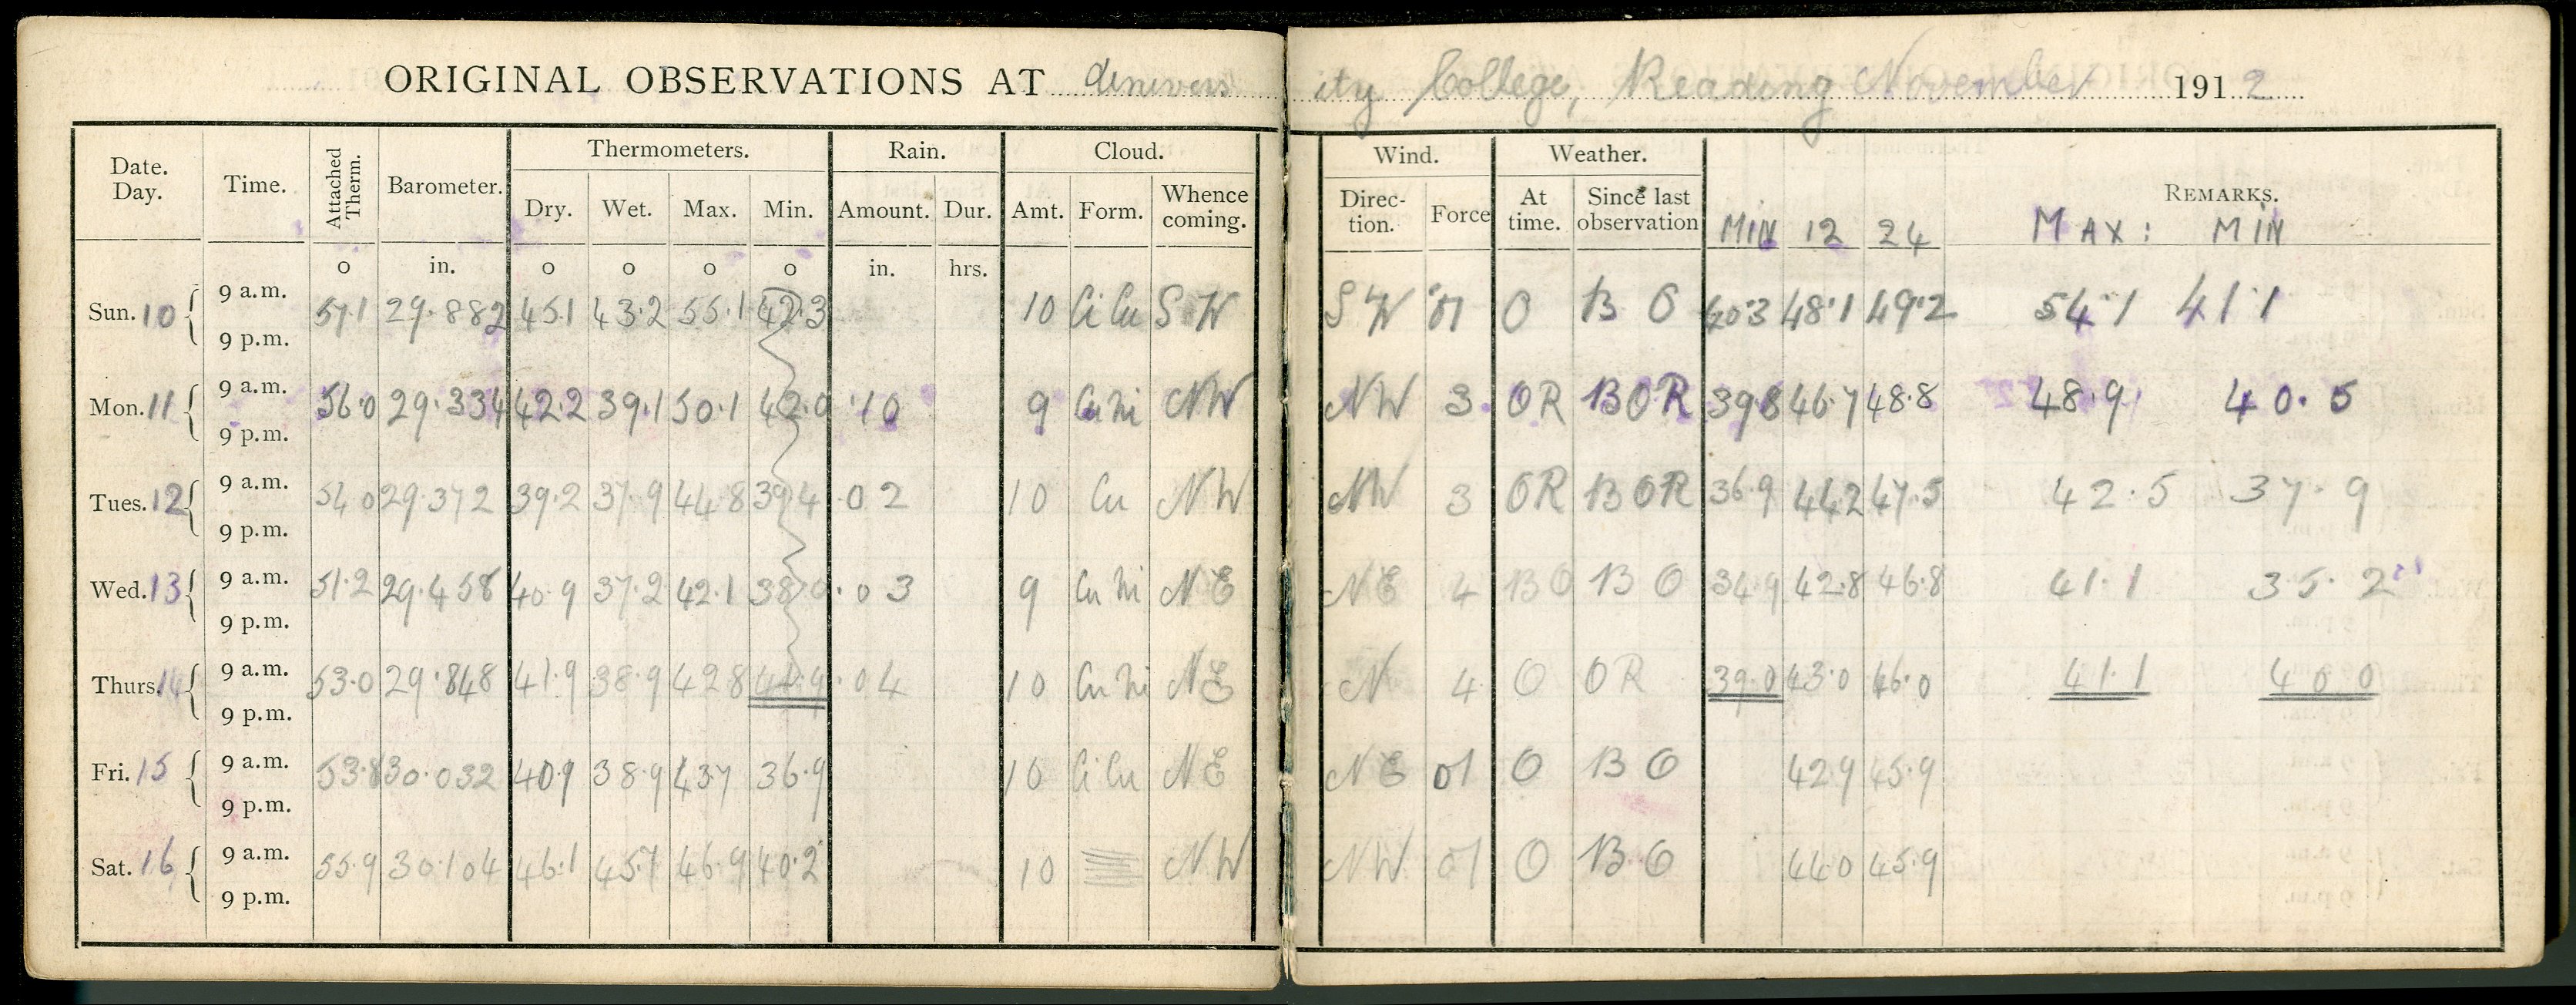 ORIGINAL OBSERVATIONS AT University College, Reading November 1912
Date. Day. Time. Attached Therm. Barometer. Thermometers. Rain. Cloud. Wind. Weather. REMARKS.
Dry. Wet. Max. Min. Amount. Dur. Amt. Form. Whence coming. Direc-tion. Force At time. Since last observation MIN 12 24 MAX: MIN
o in. o o o o in. hrs.
Sun. 10 9 a.m. 57.1 29.882 45.1 43.2 55.1 42.3 10 Ci Cu S W S W 01 O B O 40.3 48.1 49.2 54.1 41.1
9 p.m.
Mon. 11 9 a.m. 56.0 29.334 42.2 39.1 50.1 42.0 .10 9 Cu Ni NW NW 3 OR B O R 39.8 46.7 48.8 48.9 40.5
9 p.m.
Tues. 12 9 a.m. 54.0 29.372 39.2 37.9 44.8 39.4 .02 10 Cu NW NW 3 OR B O R 36.9 44.2 47.5 42.5 37.9
9 p.m.
Wed. 13 9 a.m. 51.2 29.458 40.9 37.2 42.1 38.0 .03 9 Cu Ni N E N E 4 B O B O 34.9 42.8 46.8 41.1 35.2
9 p.m.
Thurs. 14 9 a.m. 53.0 29.848 41.9 38.9 42.8 .04 10 Cu Ni N E N 4 O O R 39.0 43.0 46.0 41.1 40.0
9 p.m.
Fri. 15 9 a.m. 53.8 30.032 40.9 38.9 43.7 36.9 10 Ci Cu N E N E 01 O B O 42.9 45.9
9 p.m.
Sat. 16 9 a.m. 55.9 30.104 46.1 45.7 46.9 40.2 10 N W N W 01 O B O 44.0 45.9
9 p.m.